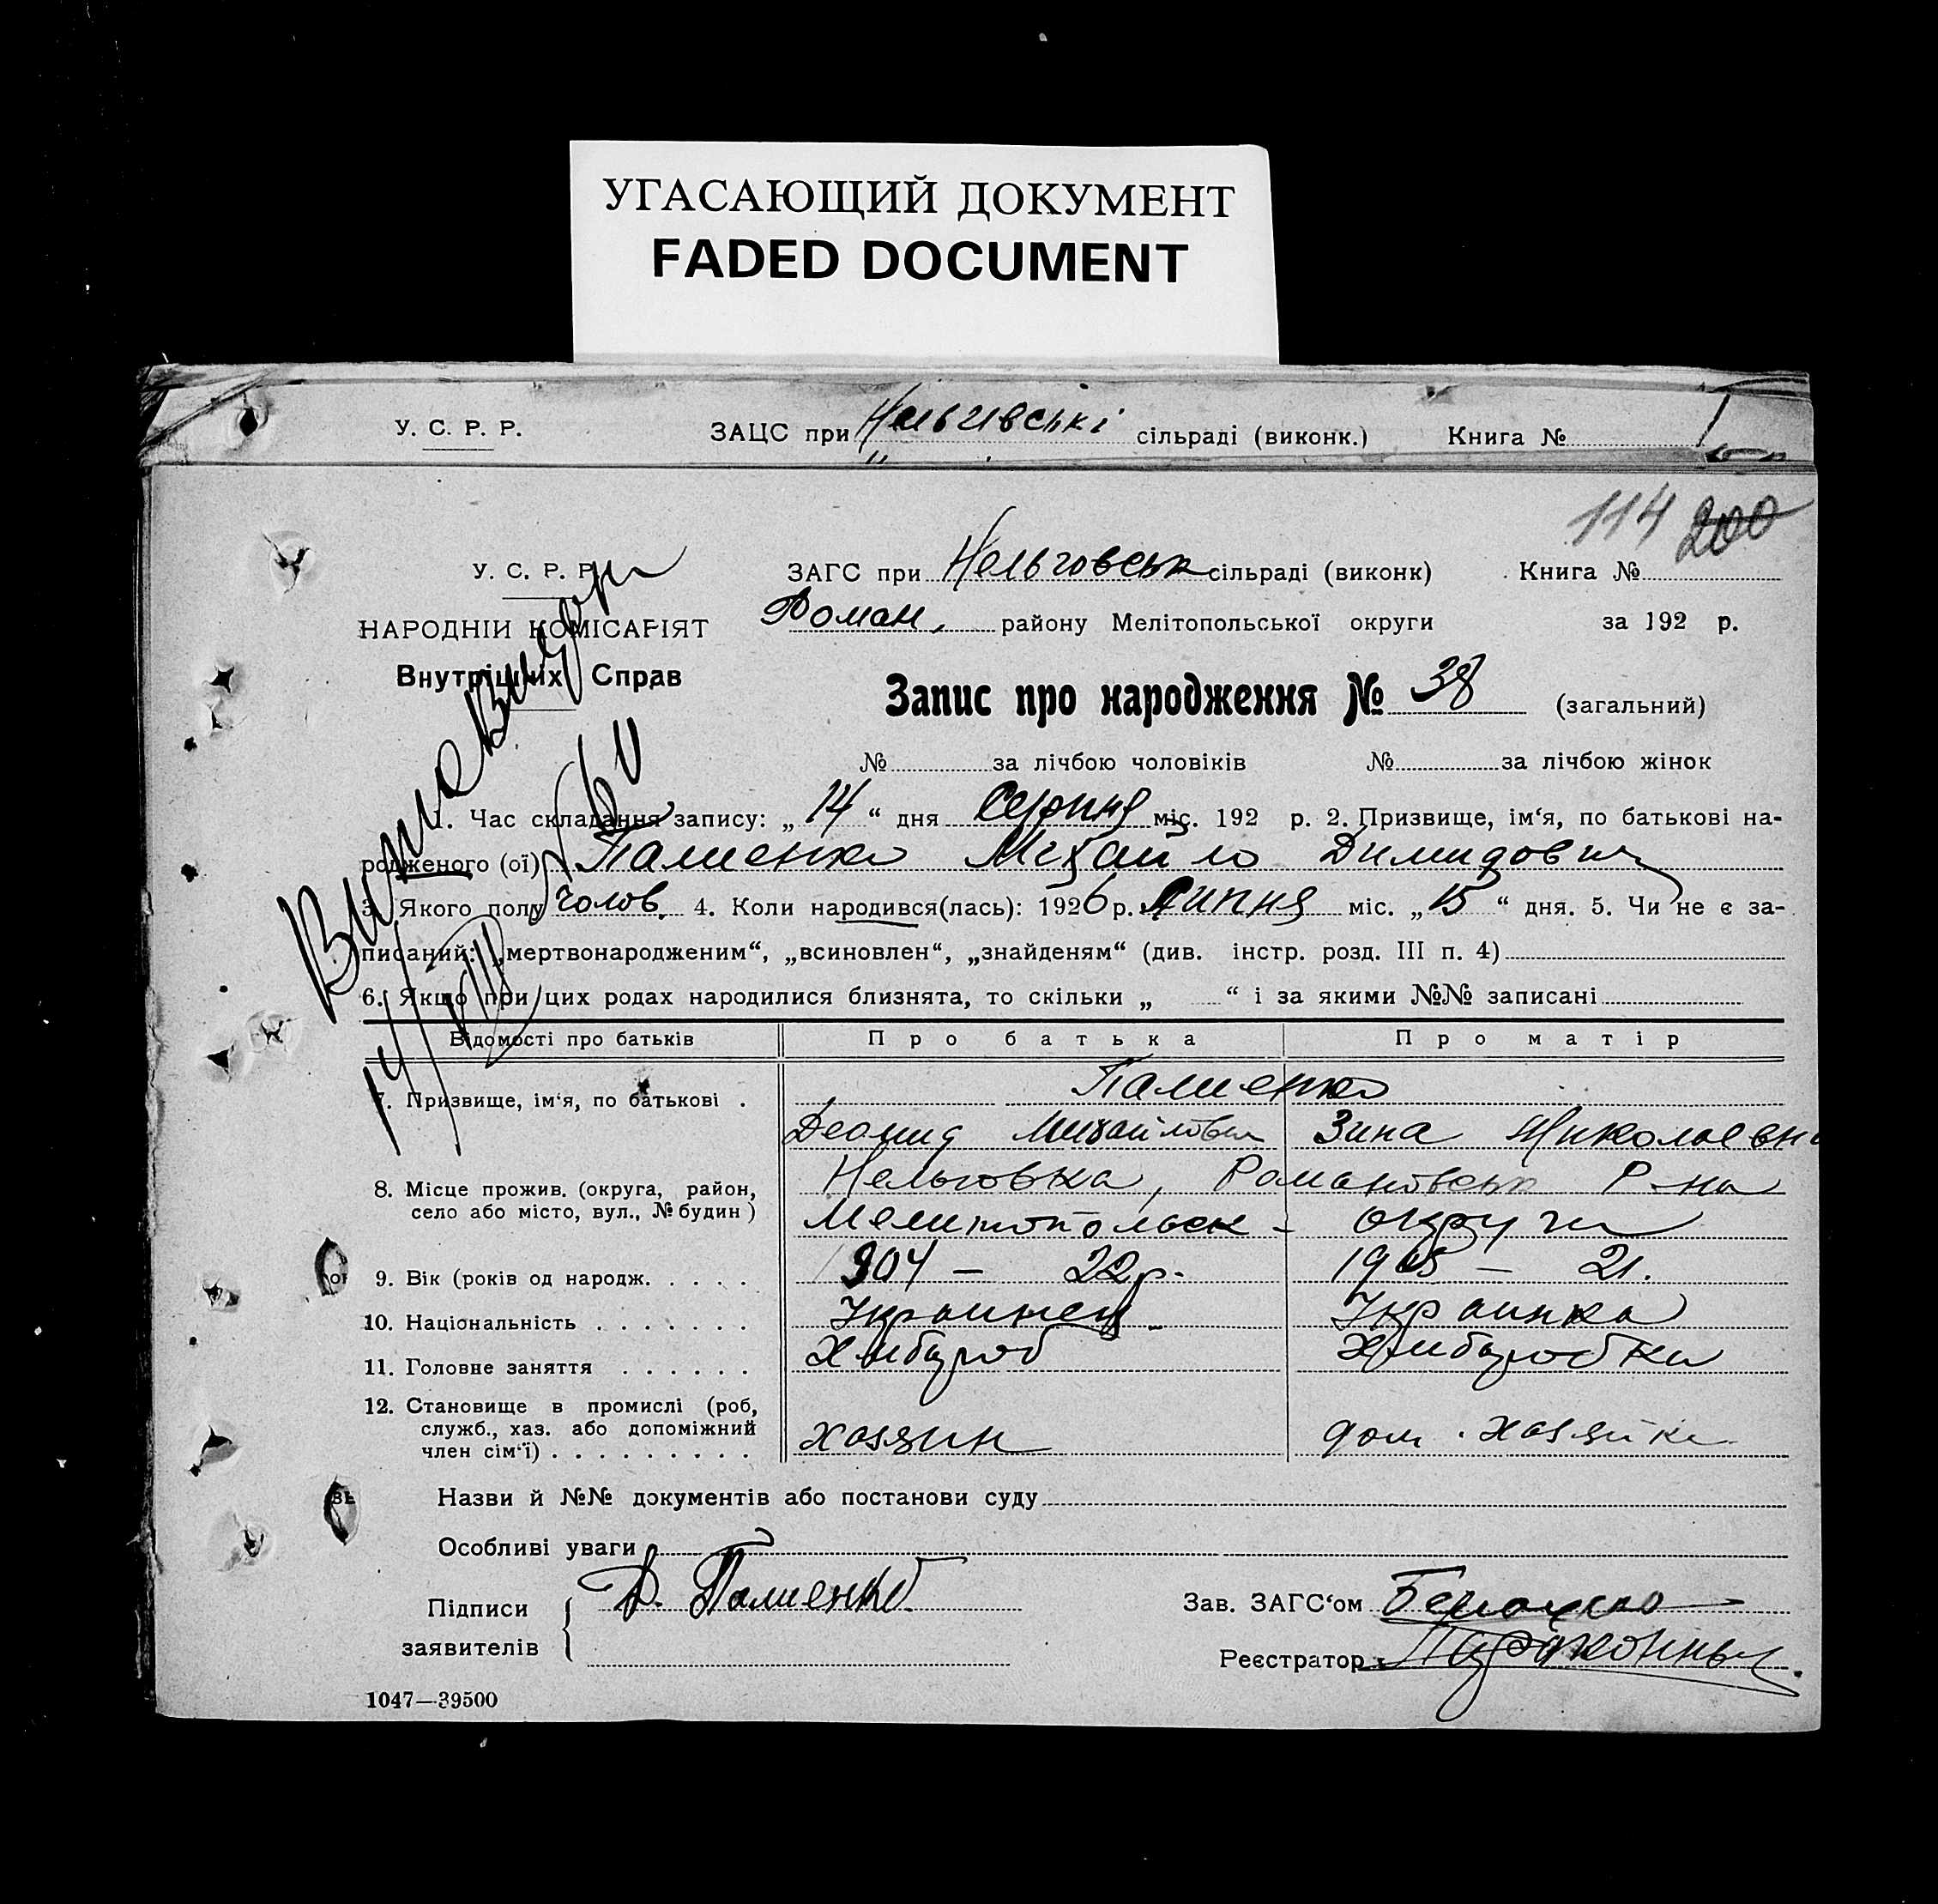 УГАСАЮЩИЙ ДОКУМЕНТ
FADED DOCUMENT
У. С. Р. Р. ЗАЦС при сільраді (виконк.) Книга №
114 200
У. С. Р. Р. ЗАГС при Нельговськ сільраді (виконк) Книга №
НАРОДНІЙ КОМІСАРІЯТ Роман. району Мелітопольської округи за 192 р.
Внутрішніх Справ
Запис про народження № 38 (загальний)
№ за лічбою чоловіків № за лічбою жінок
1. Час складання запису: „ 14 “ дня Серпня міс. 192 р. 2. Призвище, ім‘я, по батькові на-
родженого (ої) Михайло
3. Якого полу голов. 4. Коли народився(лась): 1926 р. Липня міс. „ 15 “ дня. 5. Чи не є за-
писаний: „мертвонародженим“, „всиновлен“, „знайденям“ (див. інстр. розд. III п. 4)
6. Якщо при цих родах народилися близнята, то скільки „ “ і за якими №№ записані
Відомості про батьків Про батька Про матір
7. Призвище, ім‘я, по батькові .
Михайлович Зина Николаевна
8. Місце прожив. (округа, район, Нельговка, Романовськ Р-на
село або місто, вул., № будин) Мелитопольск - округи
9. Вік (років од народж. . . . . 1904 — 22 р. 1905 — 21.
10. Національність . . . . . . . Украинец Украинка
11. Головне заняття . . . . . . Хлибороб Хлиборобка
12. Становище в промислі (роб,
служб., хаз. або допоміжний
член сім‘ї) . . . . . . . . . хозяин дом. хозяйка
Назви й №№ документів або постанови суду
Особливі уваги
Підписи Д. Зав. ЗАГС‘ом
заявителів Реєстратор
1047—39500